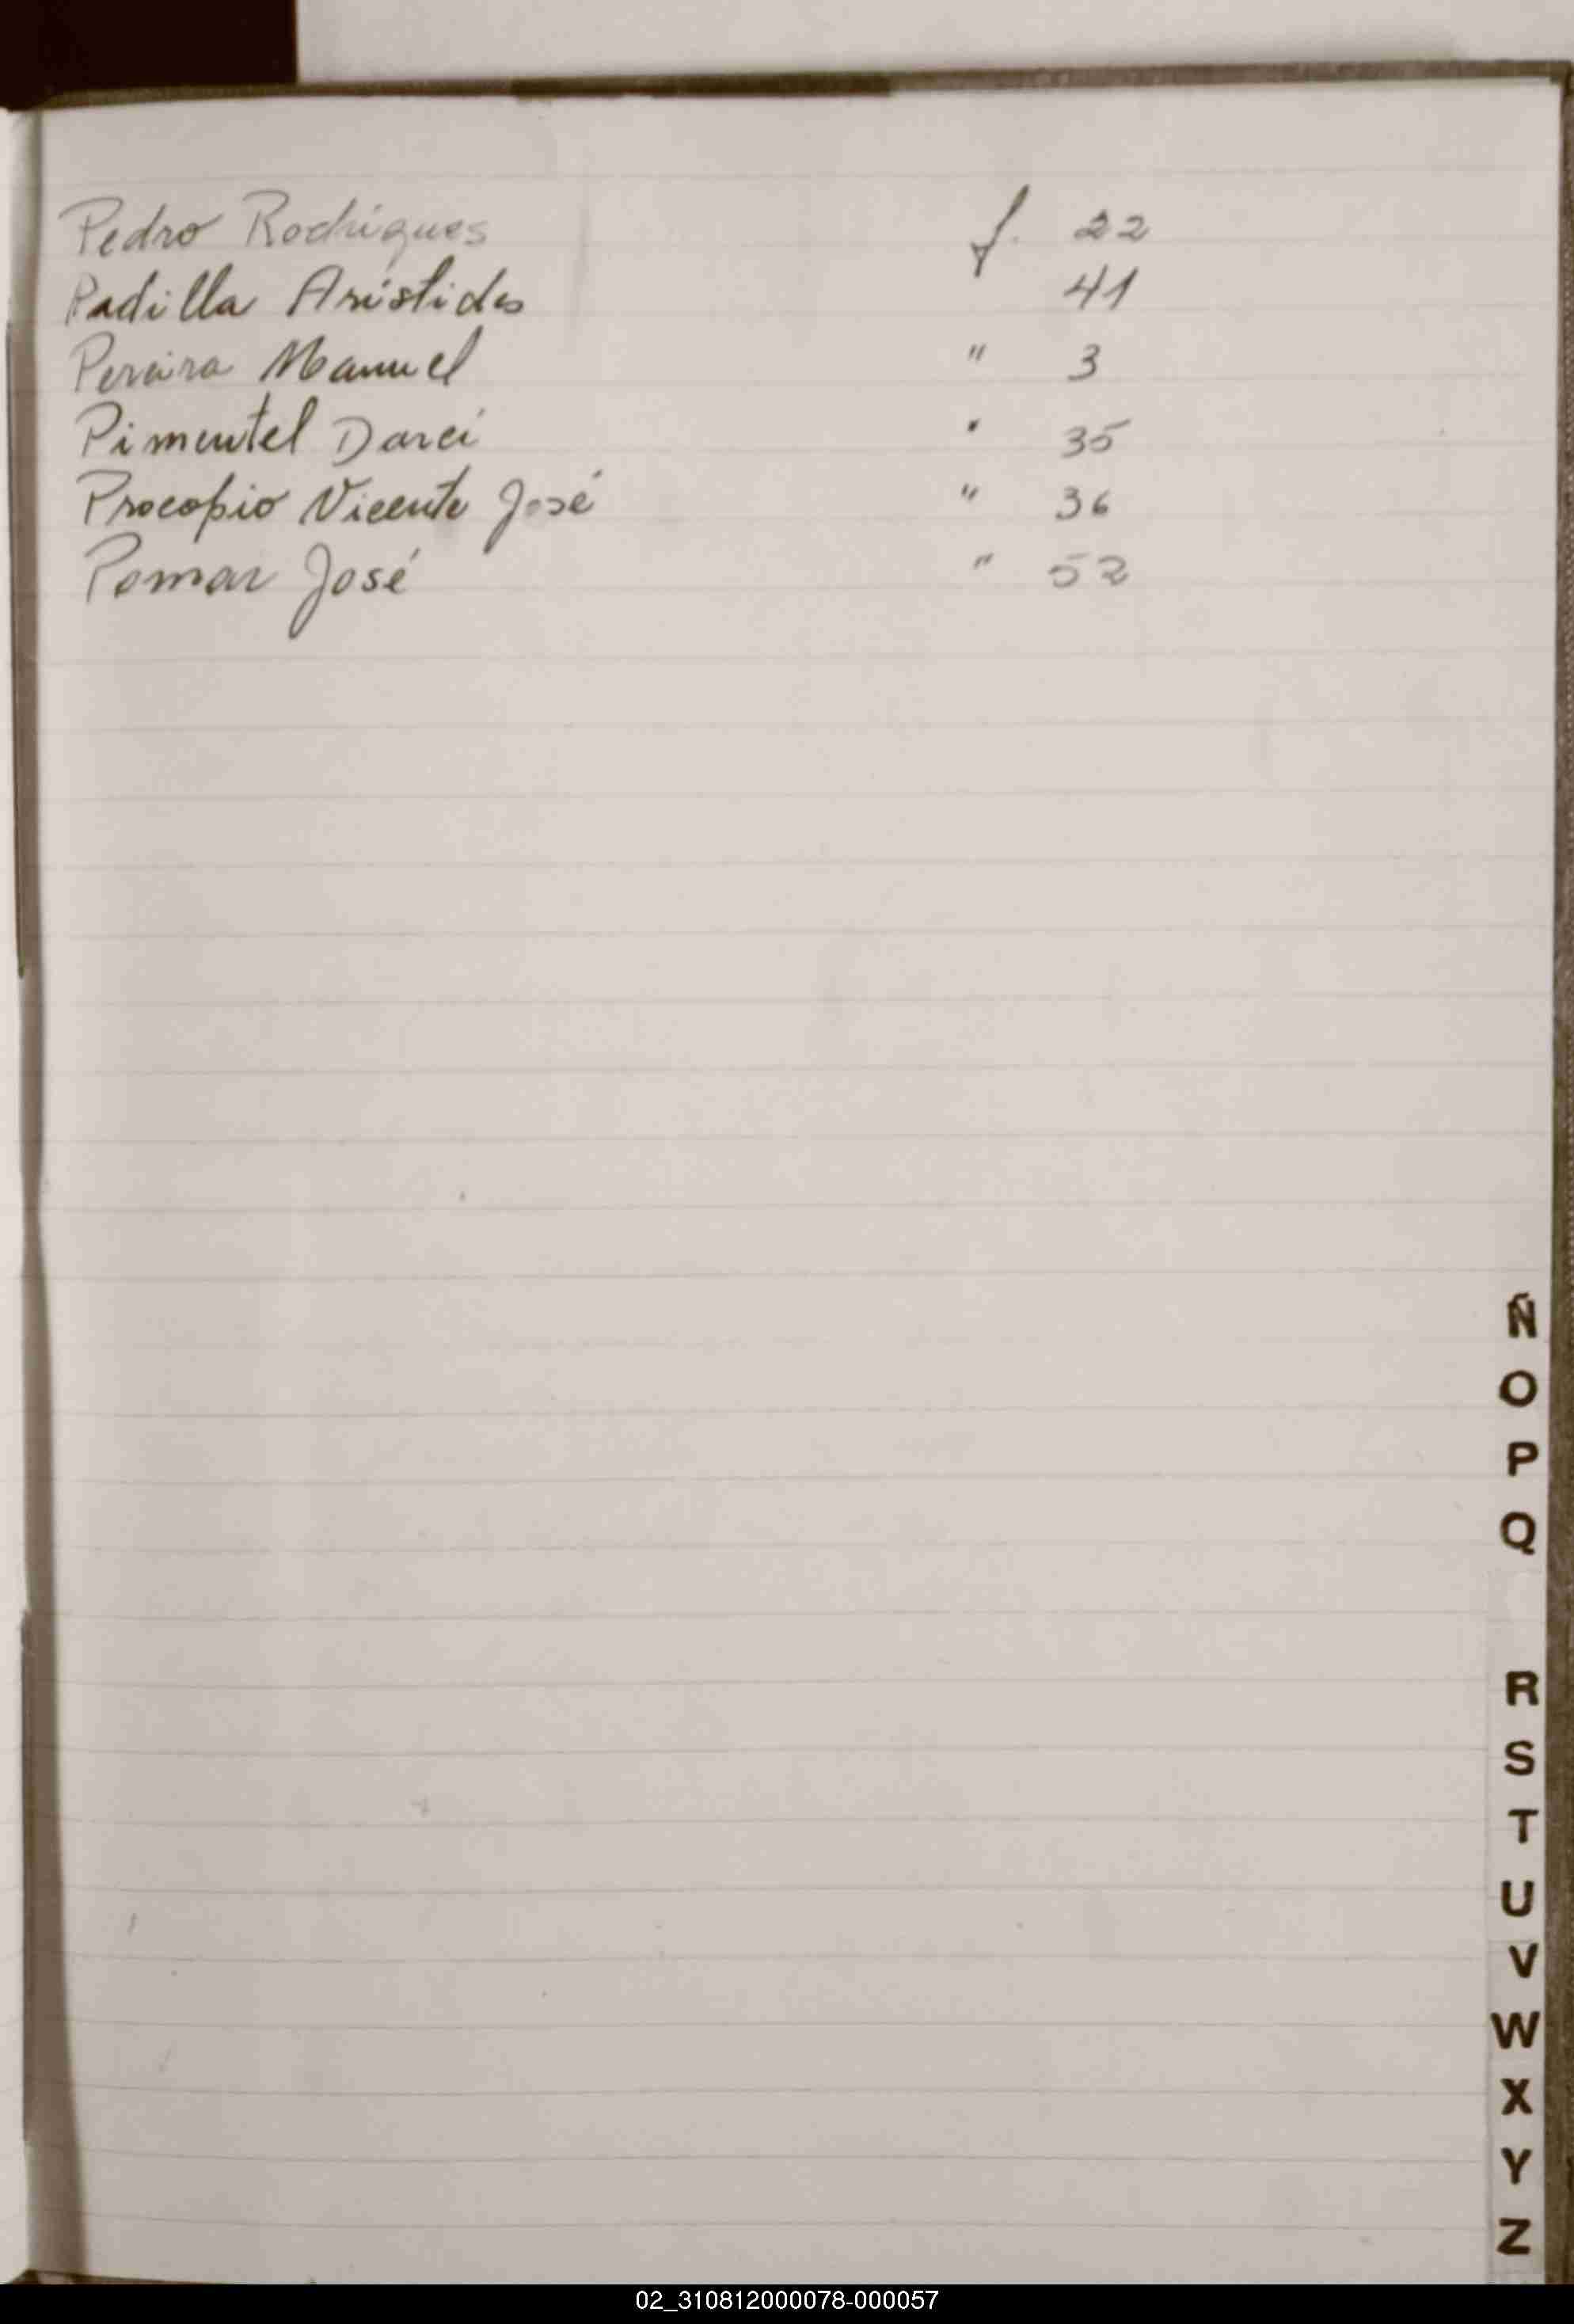 Pedro Rodrigues f. 22
Padilla Arístides 41
Pereira Manuel " 3
Pimentel Darci " 35
Procopio Vicente José " 36
Pomar José " 52
Ñ
O
P
Q
R
S
T
U
V
W
X
Y
Z
02_310812000078-000057